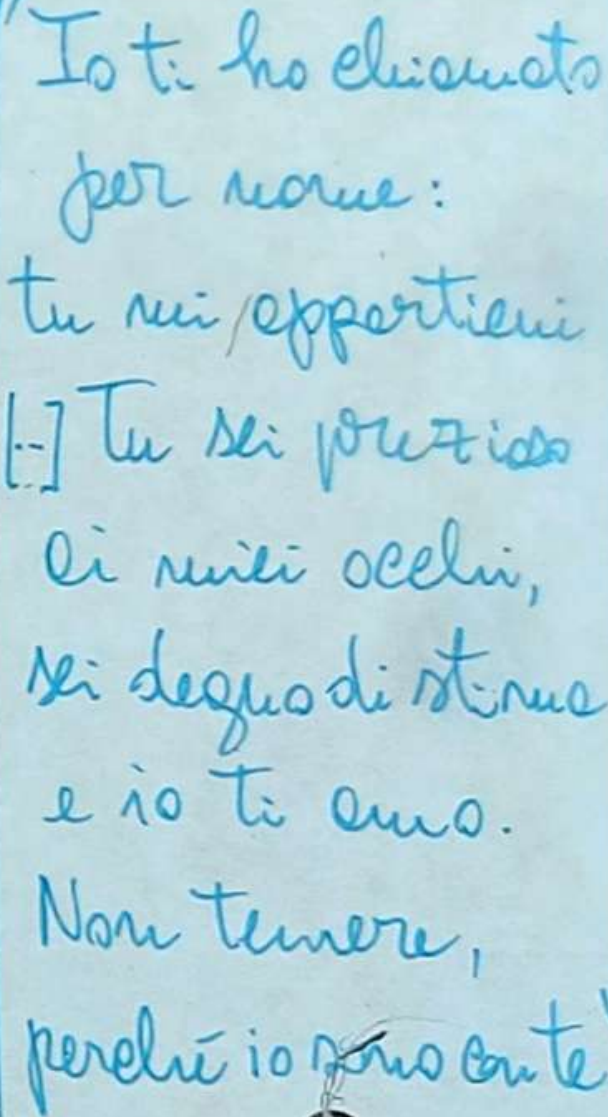 "Io ti ho chiamato
per nome:
tu mi appartieni
[...] Tu sei prezioso
ai miei occhi,
sei degno di stima
e io ti amo.
Non temere,
perché io sono con te"